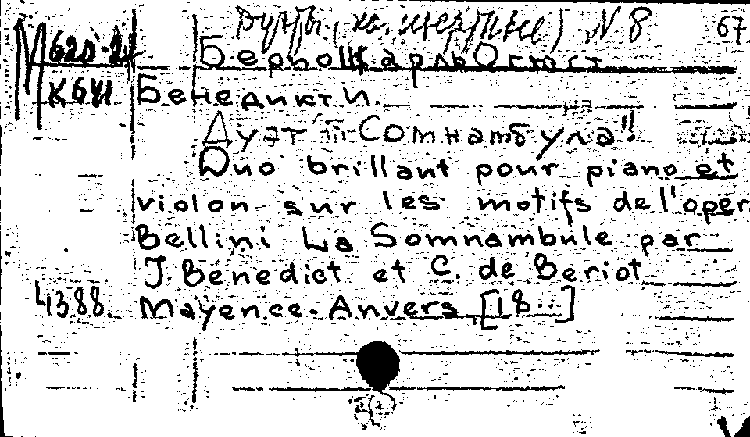 Дуэты, кл. скрипке) N 8 67
М620-21 Берио Шарль Огюст
К641 Бенедикт И.
Дуэт "Сомнамбула"
Duo brillant pour piano et
violon sur les motifs de l'oper
Bellini La Somnambule par
J. Benedict et C. de Beriot
4388 Mayence-Anvers [18..]